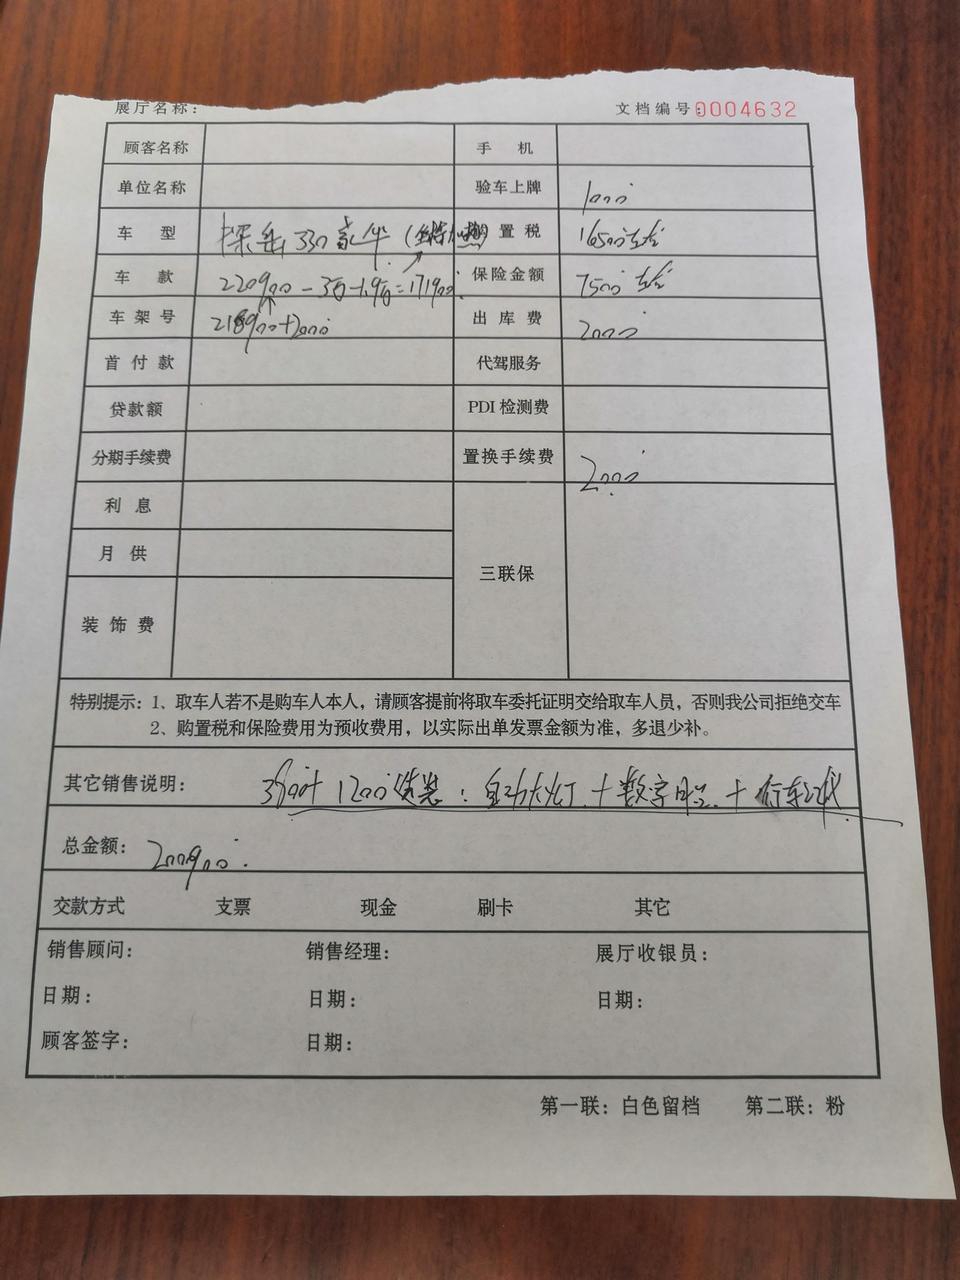 展厅名称： 文档编号：0004632
顾客名称 手 机
单位名称 验车上牌 1000
车 型 探岳330豪华 购置税 16500左右
车 款 220900－3万－1.9万＝171900 保险金额 7500左右
车架号 218900＋2000 出库费 2000
首付款 代驾服务
贷款额 PDI检测费
分期手续费 置换手续费 2000
利 息
月 供
三联保
装饰费
特别提示：1、取车人若不是购车人本人，请顾客提前将取车委托证明交给取车人员，否则我公司拒绝交车
2、购置税和保险费用为预收费用，以实际出单发票金额为准，多退少补。
其它销售说明： 3800＋1200选装：自动大灯＋数字＋行车记录仪
总金额： 200900
交款方式 支票 现金 刷卡 其它
销售顾问： 销售经理： 展厅收银员：
日期： 日期： 日期：
顾客签字： 日期：
第一联：白色留档 第二联：粉